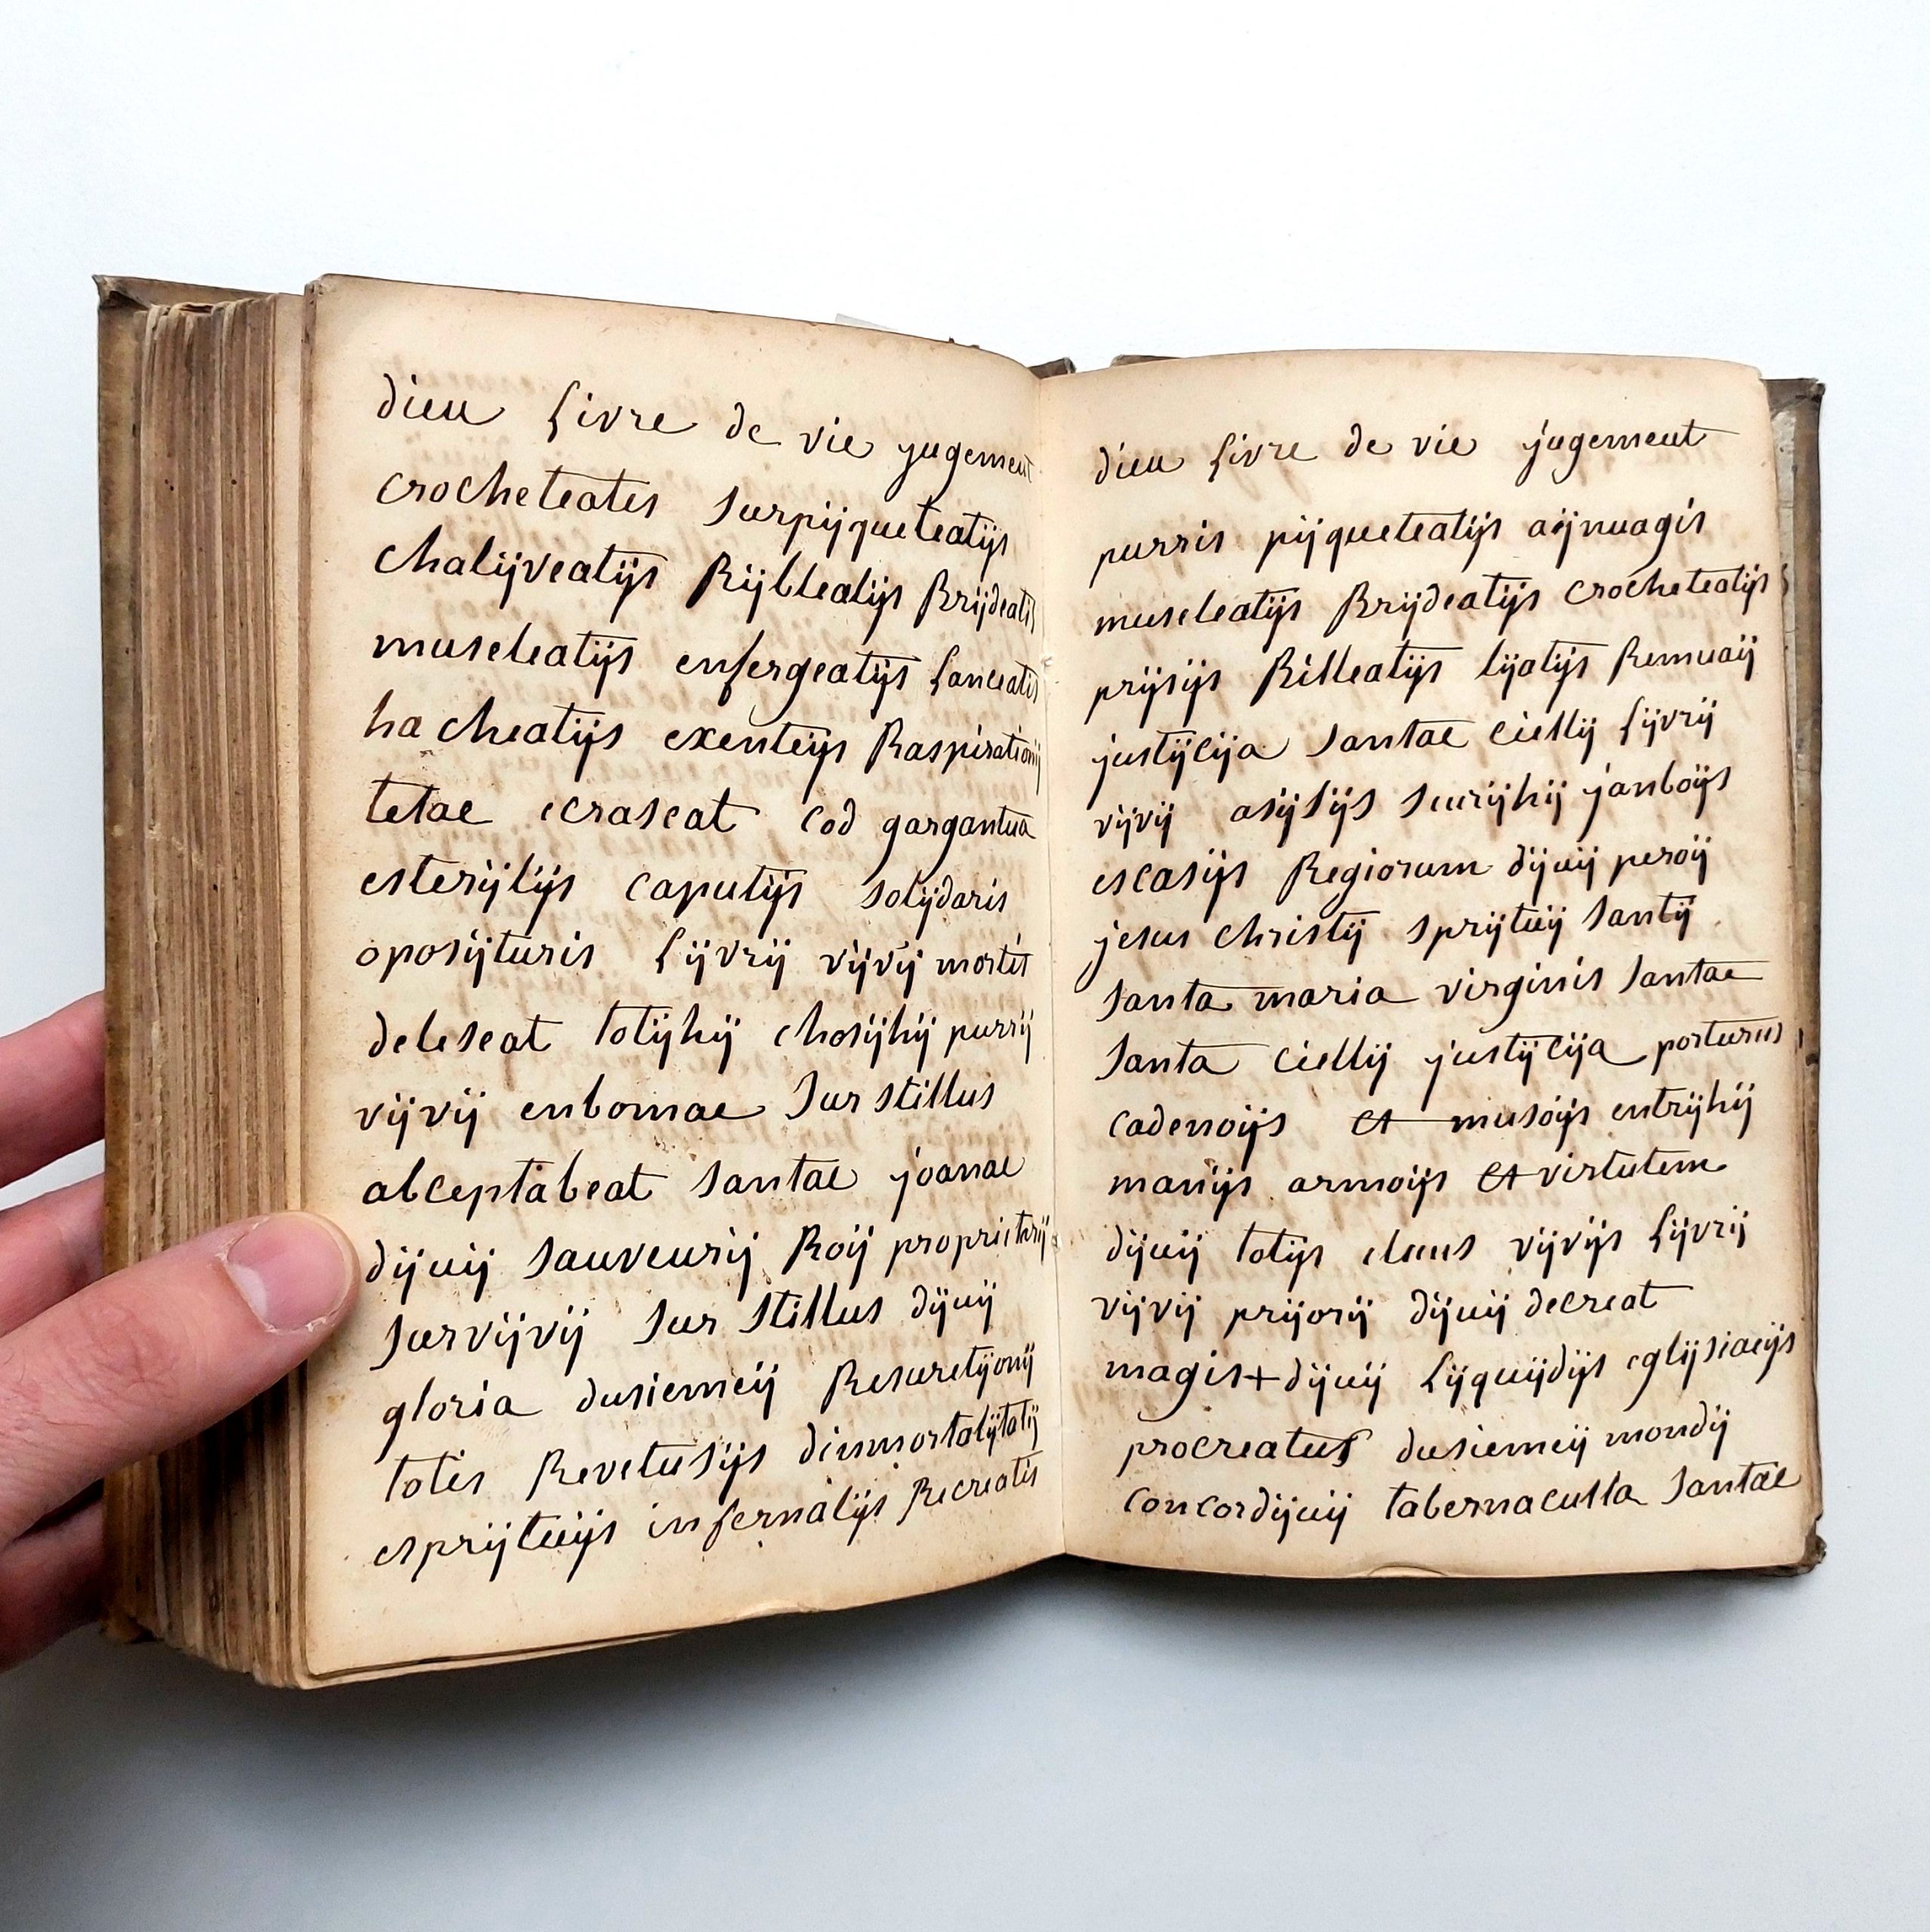 dieu Livre de vie jugement
crocheteatis surpijqueteatijs
chalijveatijs Rijbleatijs Brijdeatis
museleatijs enfergeatijs Lanceatis
hacheatijs exenteijs Raspirationij
tetae ecraseat cod gargantua
esterijlijs caputijs solijdaris
oposijturis Lijvrij vijvij mortis
deleseat totijhij chosijhij purrij
vijvij enbomae sur stillus
abceptabeat santae joanae
dijuij sauveurij Roij proprietarij
survijvij sur stillus dijuij
gloria dusiemeij Resuretijonij
totis Revetusijs dimmortalijtatij
esprijtuijs infernalijs Recreatis
dieu Livre de vie jugement
purris pijqueteatijs aijnuagis
museleatijs Brijdeatijs crocheteatijs
prijsijs Rilleatijs lijatijs Remuaij
justijcija santae ciellij Lijvrij
vijvij asijlijs surijhij janboijs
escasijs Regiorum dijuij peroij
jesus christij sprijtuij santij
santa maria virginis santae
santa ciellij justijcija porturus
cadenoijs et musoijs entrijhij
manijs armoijs et virtutem
dijuij totijs vijvijs Lijvrij
vijvij prijorij dijuij decreat
magis+dijuij Lijquijdijs eglijsiaeijs
procreatus dusiemeij mondij
concordijuij tabernaculla santae